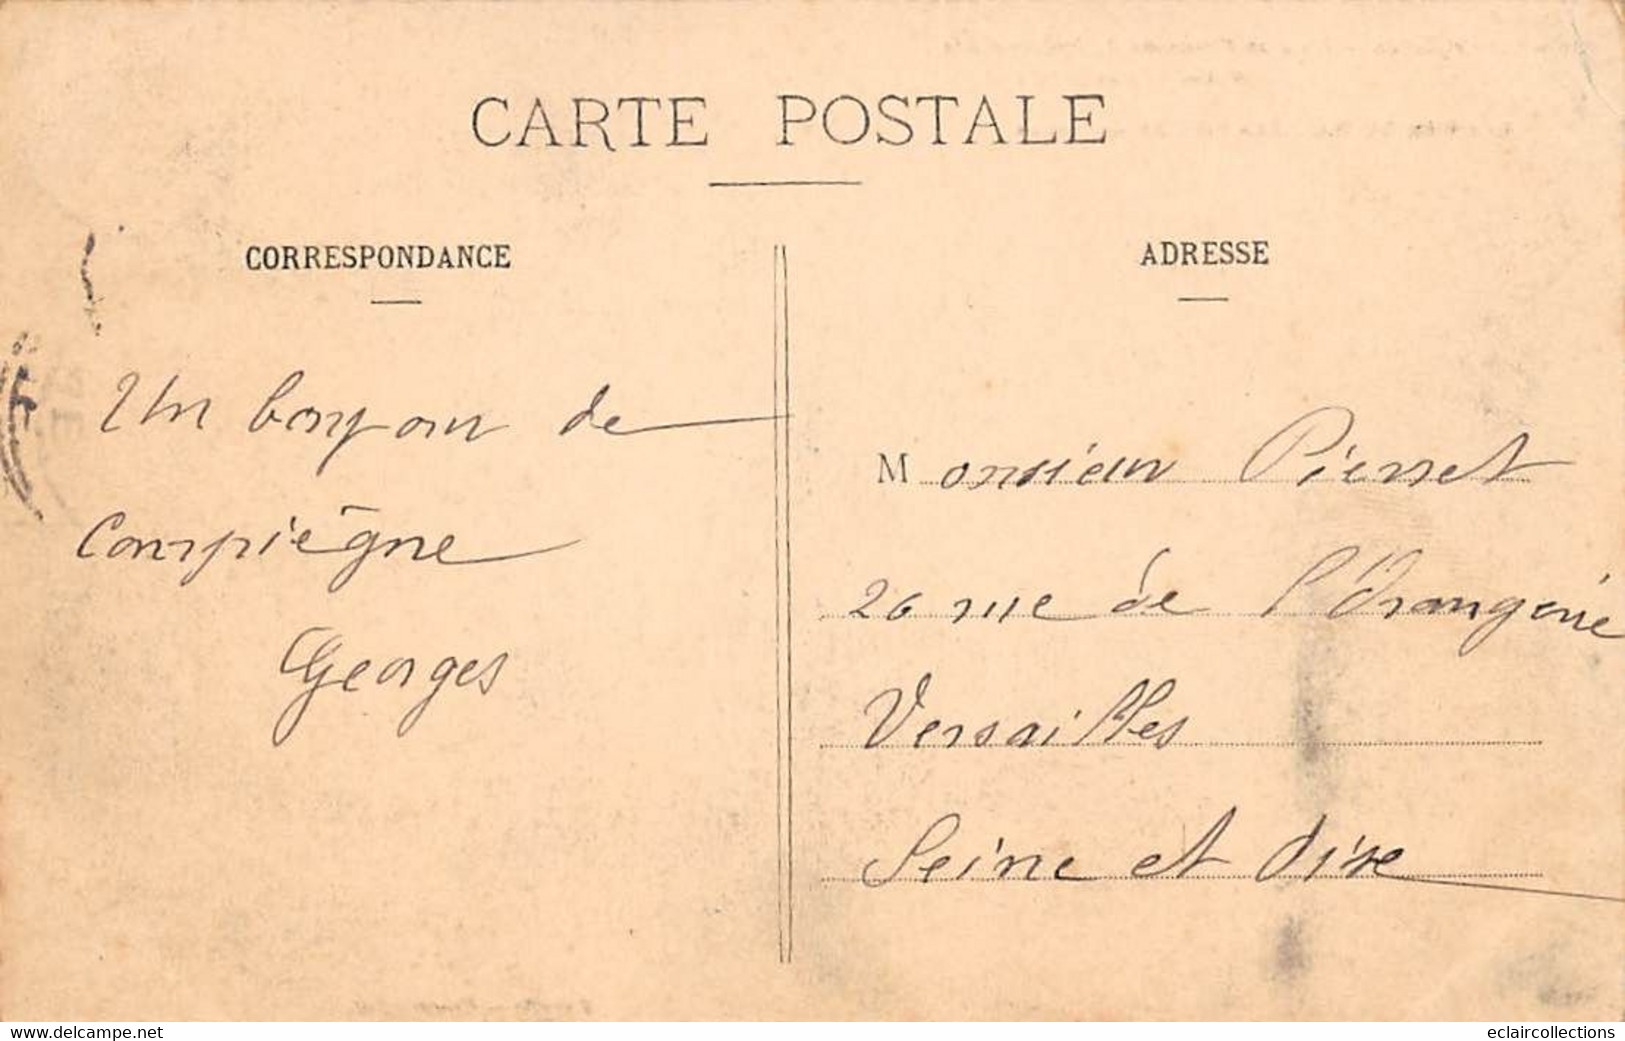 CARTE POSTALE
CORRESPONDANCE
Un bonjour de
Compiègne
Georges
ADRESSE
Monsieur Pierret
26 rue de l'Orangerie
Versailles
Seine et Oise
eclaircollections